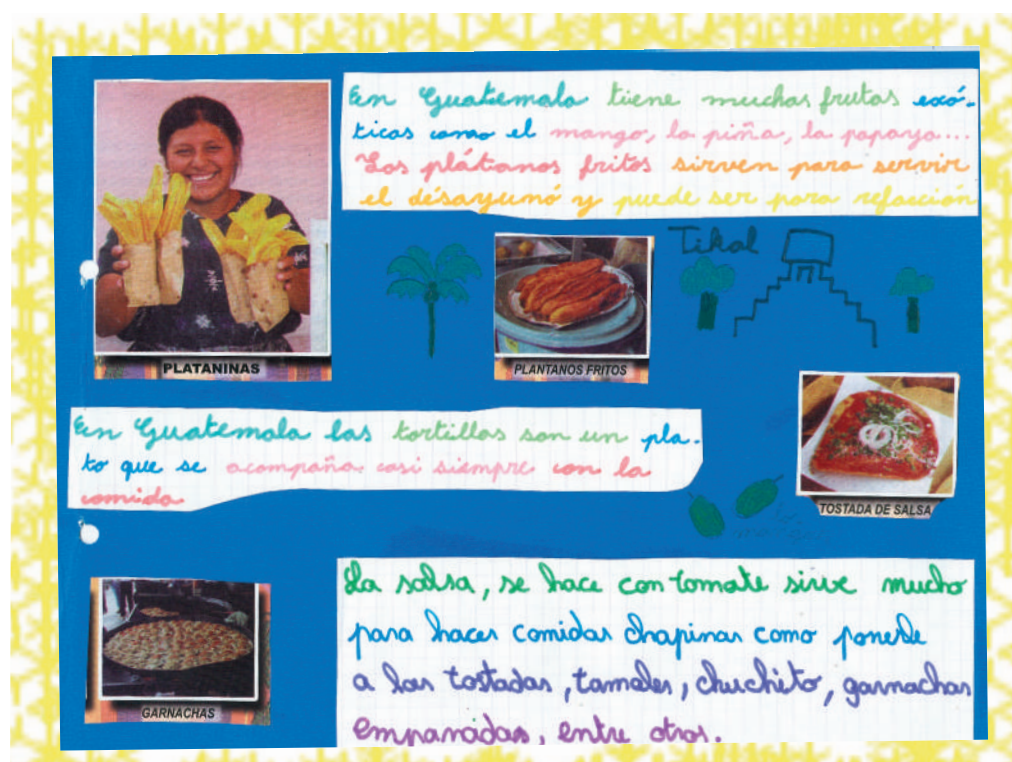 En Guatemala tiene muchas frutas exó-
ticas como el mango, la piña, la papaya...
Los plátianos fritos sirven para servir
el désayunó y puede ser para refacción
PLATANINAS
Tikal
PLANTANOS FRITOS
En Guatemala las tortillas son un pla-
to que se acompaña casi siempre con la
comida
TOSTADA DE SALSA
los
mangos
GARNACHAS
La salsa, se hace con tomate sirve mucho
para hacer comidas chapinas como ponerle
a las tostadas, tamales, chuchito, garnachas
empanadas, entre otros.